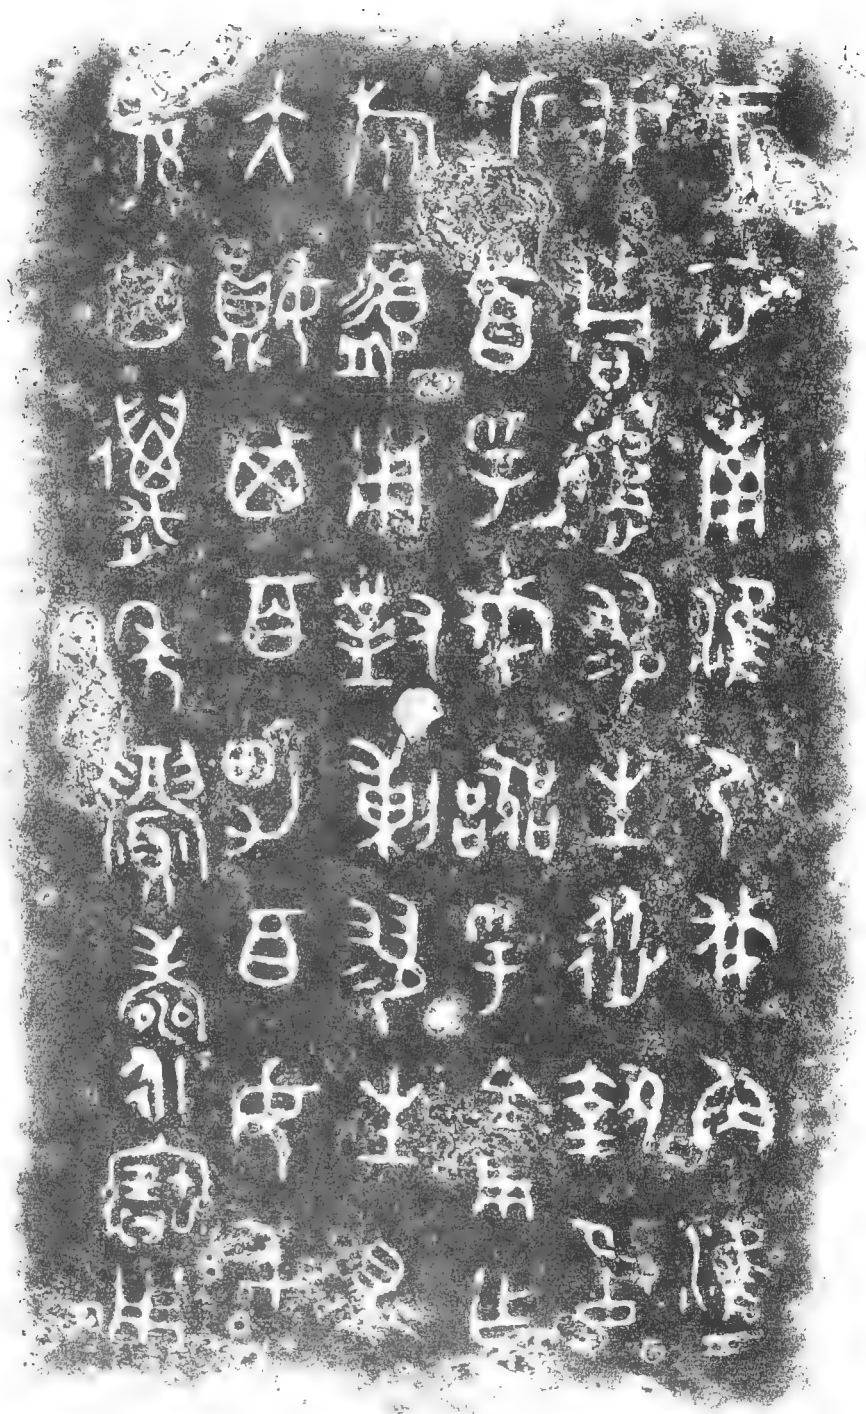 王征南淮尸伐角津
伐桐遹翏生從執訊
折首孚戎器孚金用乍
旅盨用對剌翏生眔
大㜏其百男百女千
孫其萬年眉壽永寶用